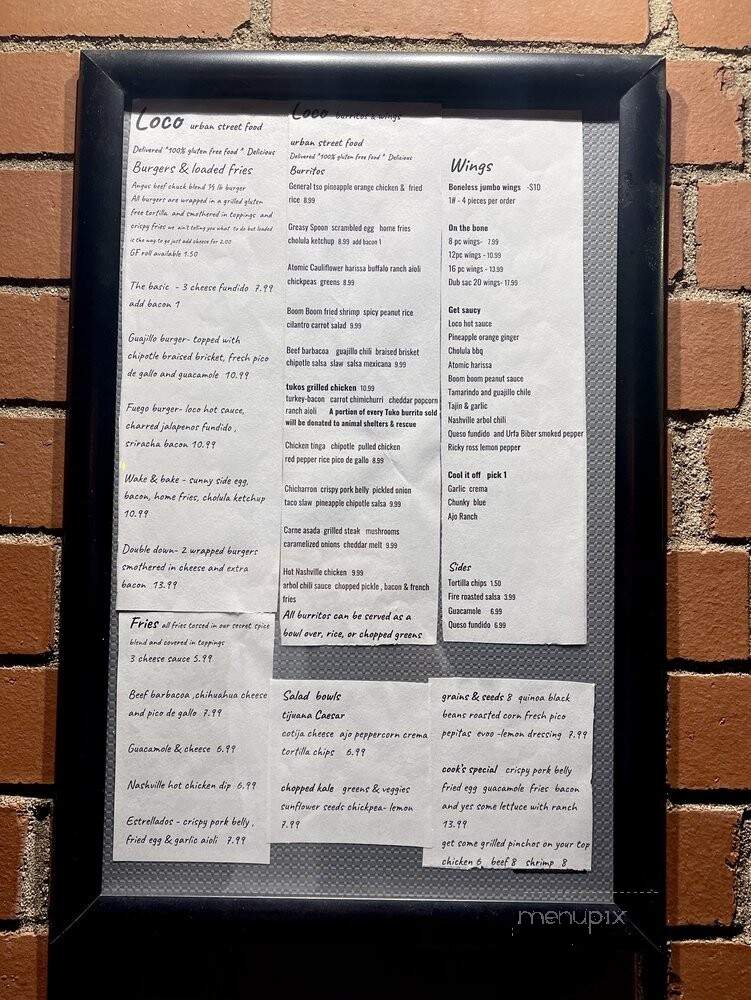 Loco urban street food
Delivered *100% gluten free food * Delicious
Burgers & loaded fries
Angus beef chuck blend ⅓ lb burger
All burgers are wrapped in a grilled gluten
free tortilla and smothered in toppings and
crispy fries we ain't telling you what to do but loaded
is the way to go just add cheese for 2.00
GF roll available 1.50
The basic - 3 cheese fundido 7.99
add bacon 1
Guajillo burger- topped with
chipotle braised brisket, fresh pico
de gallo and guacamole 10.99
Fuego burger- loco hot sauce,
charred jalapenos fundido ,
sriracha bacon 10.99
Wake & bake - sunny side egg,
bacon, home fries, cholula ketchup
10.99
Double down- 2 wrapped burgers
smothered in cheese and extra
bacon 13.99
Fries all fries tossed in our secret spice
blend and covered in toppings
3 cheese sauce 5.99
Beef barbacoa ,chihuahua cheese
and pico de gallo 7.99
Guacamole & cheese 6.99
Nashville hot chicken dip 6.99
Estrellados - crispy pork belly ,
fried egg & garlic aioli 7.99
Loco burritos & wings
urban street food
Delivered *100% gluten free food * Delicious
Burritos
General tso pineapple orange chicken & fried
rice 8.99
Greasy Spoon scrambled egg home fries
cholula ketchup 8.99 add bacon 1
Atomic Cauliflower harissa buffalo ranch aioli
chickpeas greens 8.99
Boom Boom fried shrimp spicy peanut rice
cilantro carrot salad 9.99
Beef barbacoa guajillo chili braised brisket
chipotle salsa slaw salsa mexicana 9.99
tukos grilled chicken 10.99
turkey-bacon carrot chimichurri cheddar popcorn
ranch aioli A portion of every Tuko burrito sold
will be donated to animal shelters & rescue
Chicken tinga chipotle pulled chicken
red pepper rice pico de gallo 8.99
Chicharron crispy pork belly pickled onion
taco slaw pineapple chipotle salsa 9.99
Carne asada grilled steak mushrooms
caramelized onions cheddar melt 9.99
Hot Nashville chicken 9.99
arbol chili sauce chopped pickle , bacon & french
fries
All burritos can be served as a
bowl over, rice, or chopped greens
Wings
Boneless jumbo wings -$10
1# - 4 pieces per order
On the bone
8 pc wings- 7.99
12pc wings - 10.99
16 pc wings - 13.99
Dub sac 20 wings- 17.99
Get saucy
Loco hot sauce
Pineapple orange ginger
Cholula bbq
Atomic harissa
Boom boom peanut sauce
Tamarindo and guajillo chile
Tajin & garlic
Nashville arbol chili
Queso fundido and Urfa Biber smoked pepper
Ricky ross lemon pepper
Cool it off pick 1
Garlic crema
Chunky blue
Ajo Ranch
Sides
Tortilla chips 1.50
Fire roasted salsa 3.99
Guacamole 6.99
Queso fundido 6.99
Salad bowls
tijuana Caesar
cotija cheese ajo peppercorn crema
tortilla chips 6.99
chopped kale greens & veggies
sunflower seeds chickpea- lemon
7.99
grains & seeds 8 quinoa black
beans roasted corn fresh pico
pepitas evoo -lemon dressing 7.99
cook's special crispy pork belly
fried egg guacamole fries bacon
and yes some lettuce with ranch
13.99
get some grilled pinchos on your top
chicken 6 beef 8 shrimp 8
menupix